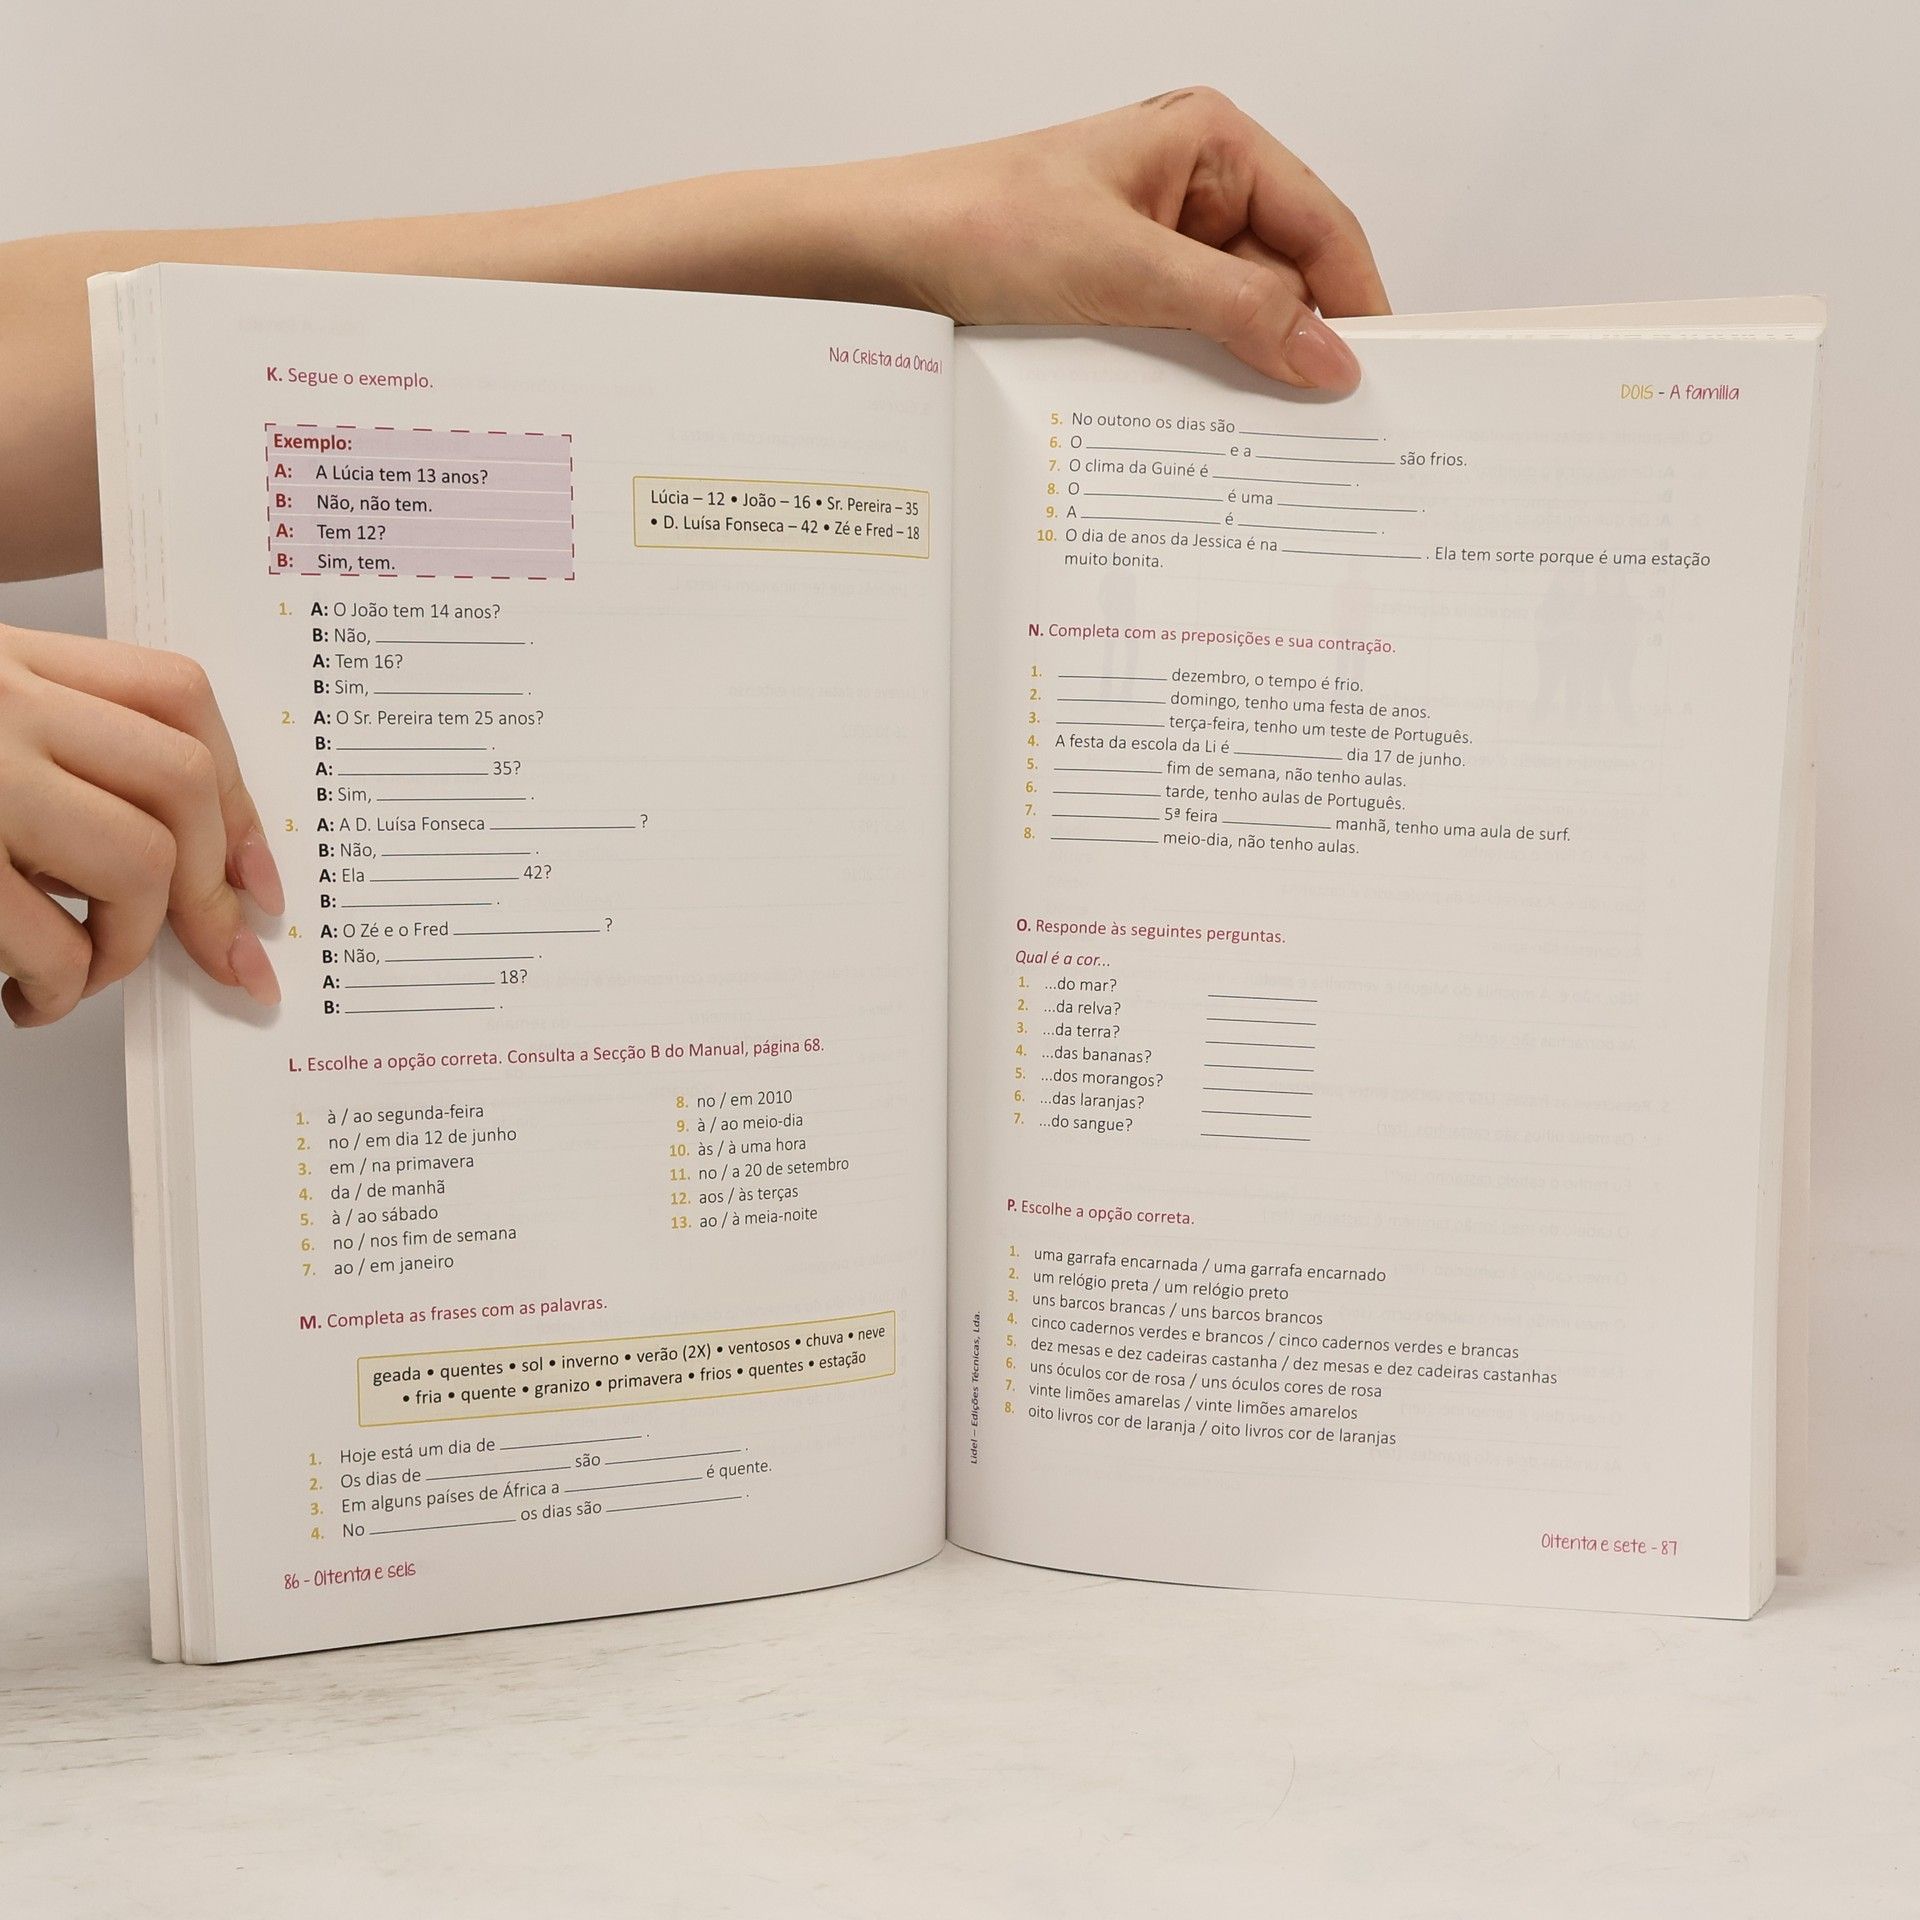 Na Crista da Onda 1
K. Segue o exemplo.
Exemplo:
A: A Lúcia tem 13 anos?
B: Não, não tem.
A: Tem 12?
B: Sim, tem.
Lúcia – 12 • João – 16 • Sr. Pereira – 35
• D. Luísa Fonseca – 42 • Zé e Fred – 18
1. A: O João tem 14 anos?
B: Não, ____________ .
A: Tem 16?
B: Sim, ____________ .
2. A: O Sr. Pereira tem 25 anos?
B: ____________ .
A: ____________ 35?
B: Sim, ____________ .
3. A: A D. Luísa Fonseca ____________ ?
B: Não, ____________ .
A: Ela ____________ 42?
B: ____________ .
4. A: O Zé e o Fred ____________ ?
B: Não, ____________ .
A: ____________ 18?
B: ____________ .
L. Escolhe a opção correta. Consulta a Secção B do Manual, página 68.
1. à / ao segunda-feira
2. no / em dia 12 de junho
3. em / na primavera
4. da / de manhã
5. à / ao sábado
6. no / nos fim de semana
7. ao / em janeiro
8. no / em 2010
9. à / ao meio-dia
10. às / à uma hora
11. no / a 20 de setembro
12. aos / às terças
13. ao / à meia-noite
M. Completa as frases com as palavras.
geada • quentes • sol • inverno • verão (2X) • ventosos • chuva • neve
• fria • quente • granizo • primavera • frios • quentes • estação
1. Hoje está um dia de ____________ .
2. Os dias de ____________ são ____________ .
3. Em alguns países de África a ____________ é quente.
4. No ____________ os dias são ____________ .
86 - Oitenta e seis
DOIS - A família
5. No outono os dias são ____________ .
6. O ____________ e a ____________ são frios.
7. O clima da Guiné é ____________ .
8. O ____________ é uma ____________ .
9. A ____________ é ____________ .
10. O dia de anos da Jessica é na ____________ . Ela tem sorte porque é uma estação
muito bonita.
N. Completa com as preposições e sua contração.
1. ____________ dezembro, o tempo é frio.
2. ____________ domingo, tenho uma festa de anos.
3. ____________ terça-feira, tenho um teste de Português.
4. A festa da escola da Li é ____________ dia 17 de junho.
5. ____________ fim de semana, não tenho aulas.
6. ____________ tarde, tenho aulas de Português.
7. ____________ 5ª feira ____________ manhã, tenho uma aula de surf.
8. ____________ meio-dia, não tenho aulas.
O. Responde às seguintes perguntas.
Qual é a cor...
1. ...do mar? ____________
2. ...da relva? ____________
3. ...da terra? ____________
4. ...das bananas? ____________
5. ...dos morangos? ____________
6. ...das laranjas? ____________
7. ...do sangue? ____________
P. Escolhe a opção correta.
1. uma garrafa encarnada / uma garrafa encarnado
2. um relógio preta / um relógio preto
3. uns barcos brancas / uns barcos brancos
4. cinco cadernos verdes e brancos / cinco cadernos verdes e brancas
5. dez mesas e dez cadeiras castanha / dez mesas e dez cadeiras castanhas
6. uns óculos cor de rosa / uns óculos cores de rosa
7. vinte limões amarelas / vinte limões amarelos
8. oito livros cor de laranja / oito livros cor de laranjas
Lidel – Edições Técnicas, Lda.
Oitenta e sete - 87